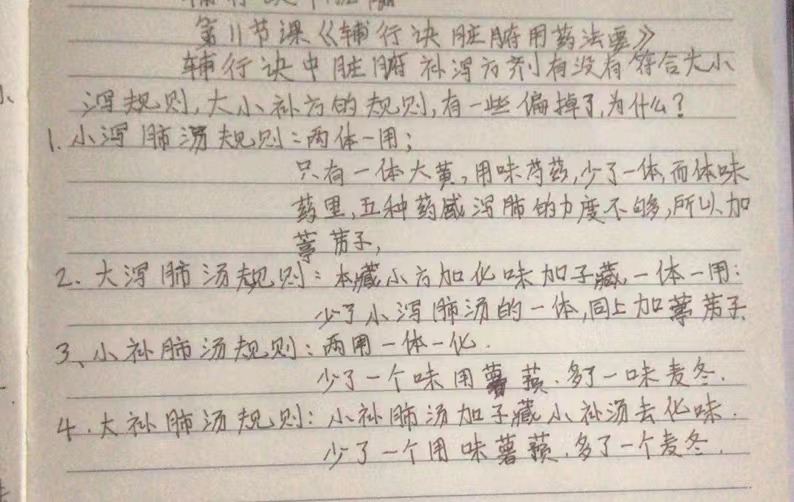 第11节课《辅行诀脏腑用药法要》
辅行诀中脏腑补泻方剂有没有符合大小
泻规则,大小补方的规则,有一些偏掉了,为什么?
1.小泻肺汤规则:两体一用;
只有一体大黄,用味芍药,少了一体,而体味
药里,五种药咸泻肺的力度不够,所以加
葶苈子,
2.大泻肺汤规则:本藏小方加化味加子藏,一体一用:
少了小泻肺汤的一体,同上加葶苈子
3、小补肺汤规则:两用一体一化.
少了一个味用薯蓣.多了一味麦冬.
4.大补肺汤规则:小补肺汤加子藏小补汤去化味.
少了一个用味薯蓣.多了一个麦冬.